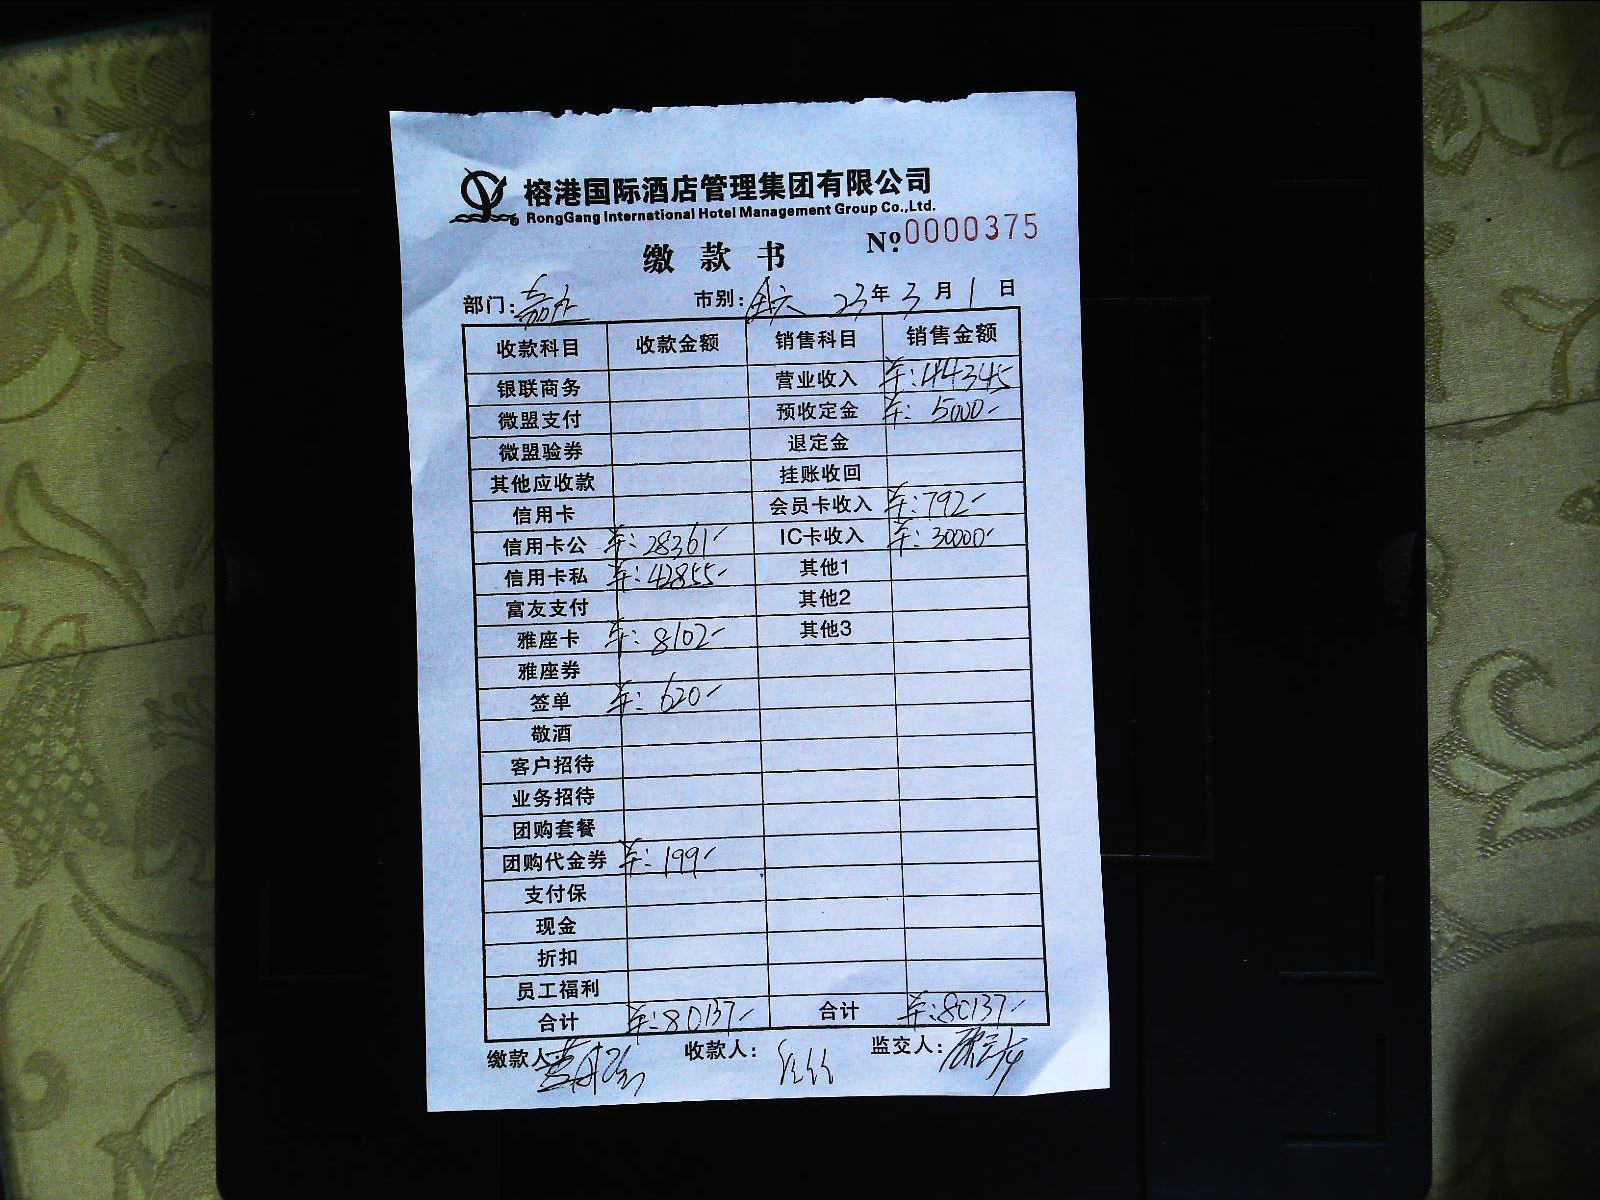 榕港国际酒店管理集团有限公司
RongGang International Hotel Management Group Co.,Ltd.
缴款书 Nº 0000375
部门: 市别: 23年3月1日
收款科目 收款金额 销售科目 销售金额
银联商务 营业收入 44345
微盟支付 预收定金 5000-
微盟验券 退定金
其他应收款 挂账收回
信用卡 会员卡收入 792-
信用卡公 28361- IC卡收入 30000-
信用卡私 42855- 其他1
富友支付 其他2
雅座卡 8102- 其他3
雅座券
签单 620-
敬酒
客户招待
业务招待
团购套餐
团购代金券 199-
支付保
现金
折扣
员工福利
合计 80137- 合计 80137-
缴款人: 收款人: 监交人: